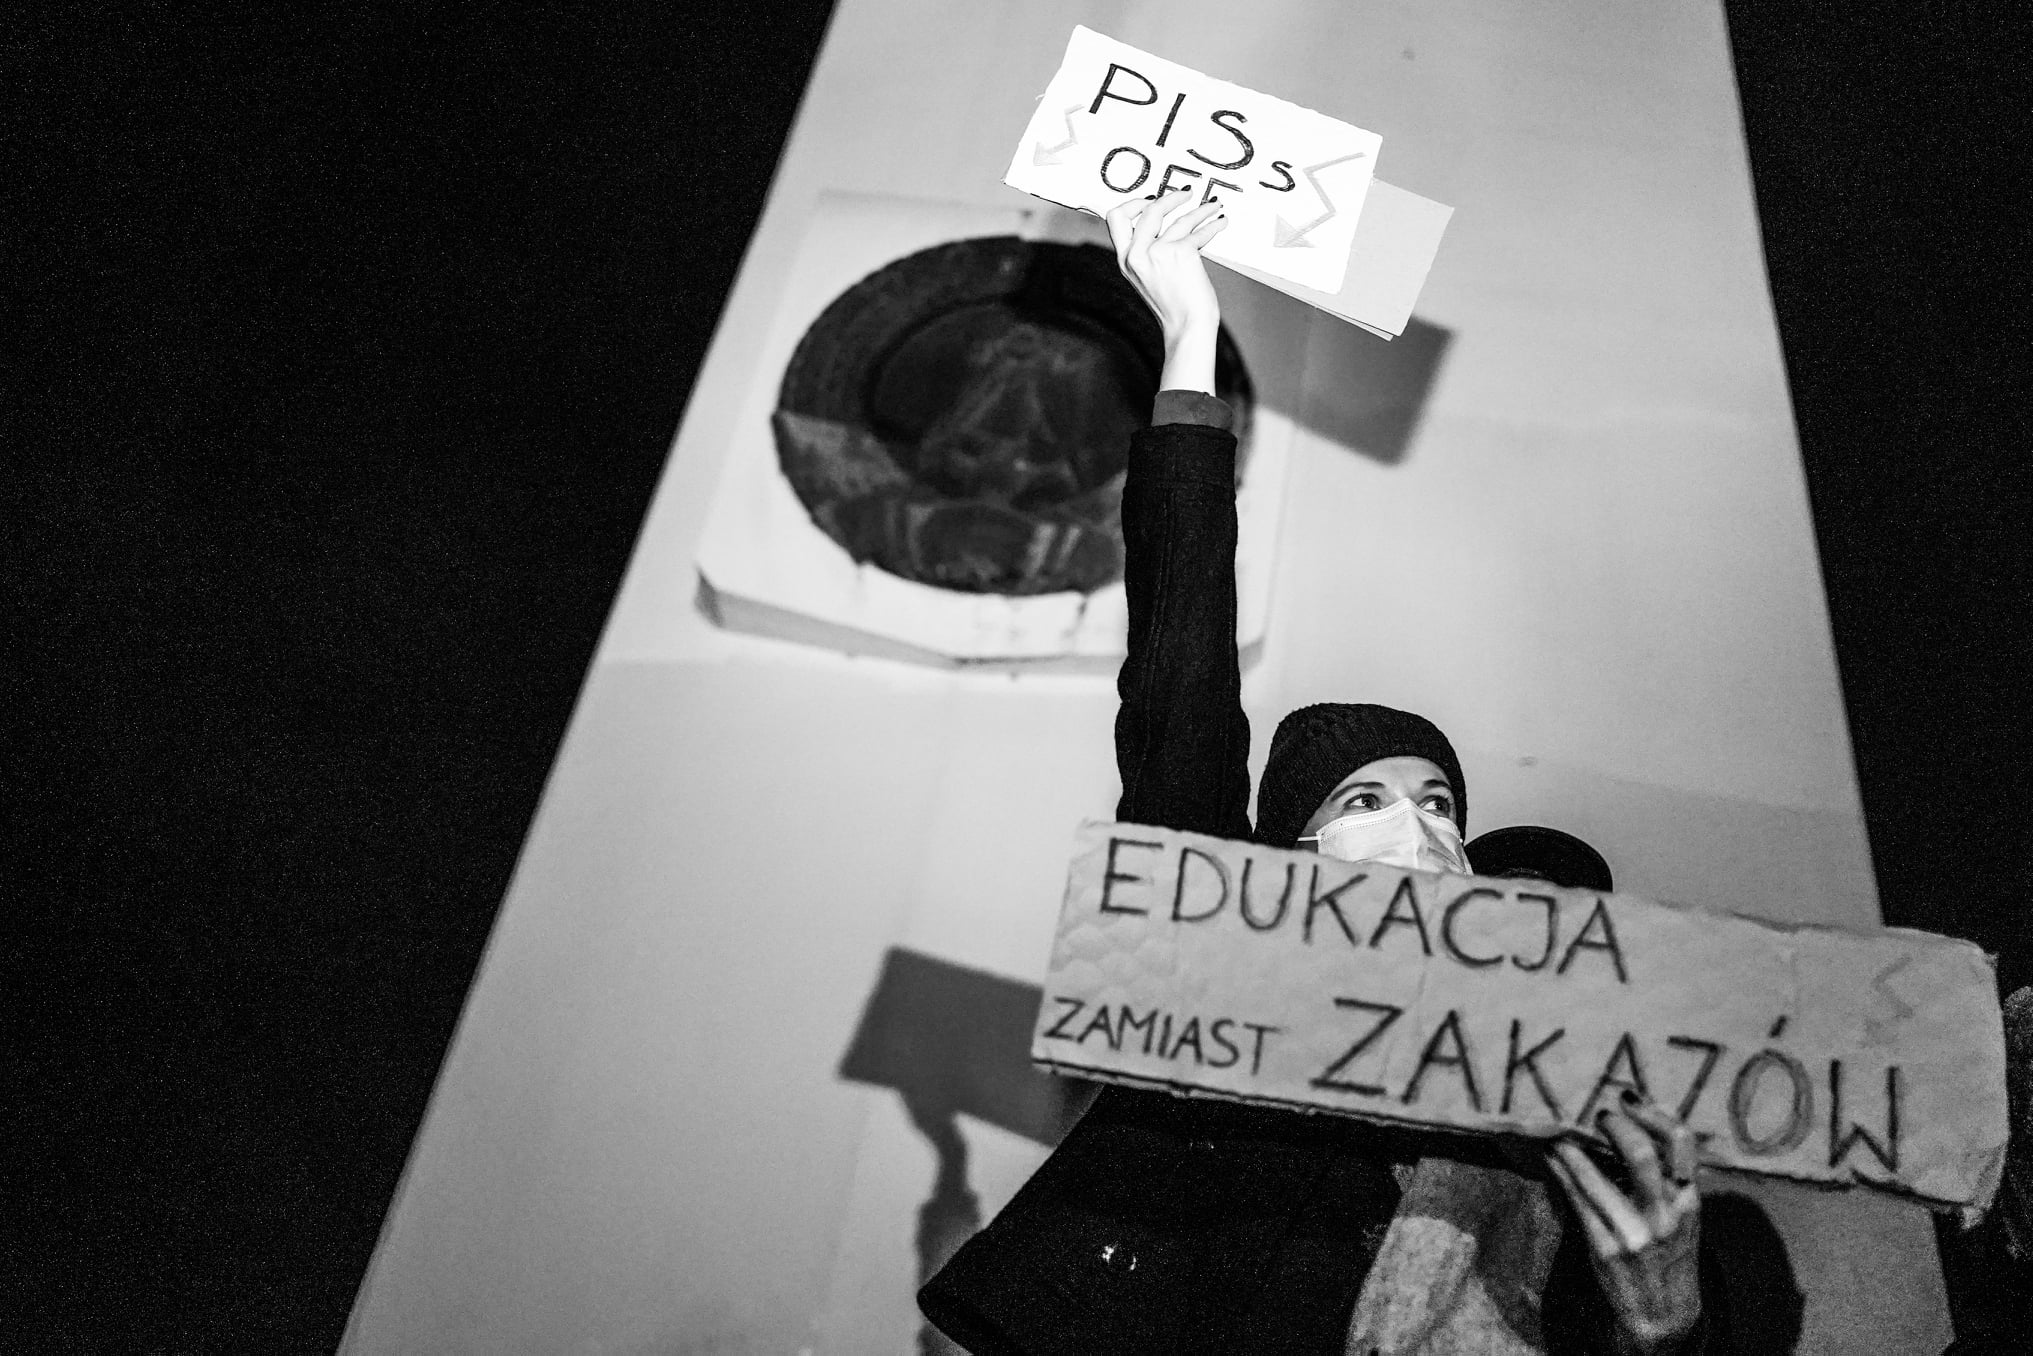 PISs
OFF
EDUKACJA
ZAMIAST ZAKAZÓW